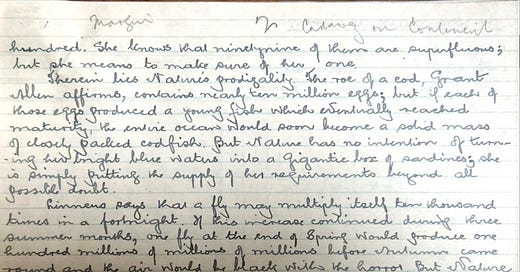 Margin 2 on Continent
hundred. She knows that ninetynine of them are superfluous;
but she means to make sure of her one.
Therein lies Nature's prodigality. The roe of a cod, Grant
Allen affirms, contains nearly ten million eggs; but if each of
those eggs produced a young fish which eventually reached
maturity, the entire ocean would soon become a solid mass
of closely packed codfish. But Nature has no intention of turn-
-ing her bright blue waters into a gigantic box of sardines; she
is simply putting the supply of her requirements beyond all
possible doubt.
Linneus says that a fly may multiply itself ten thousand
times in a fortnight. If this increase continued during three
summer months, one fly at the end of Spring would produce one
hundred millions of millions of millions before Autumn came
round and the air would be black with the horror. But Nature